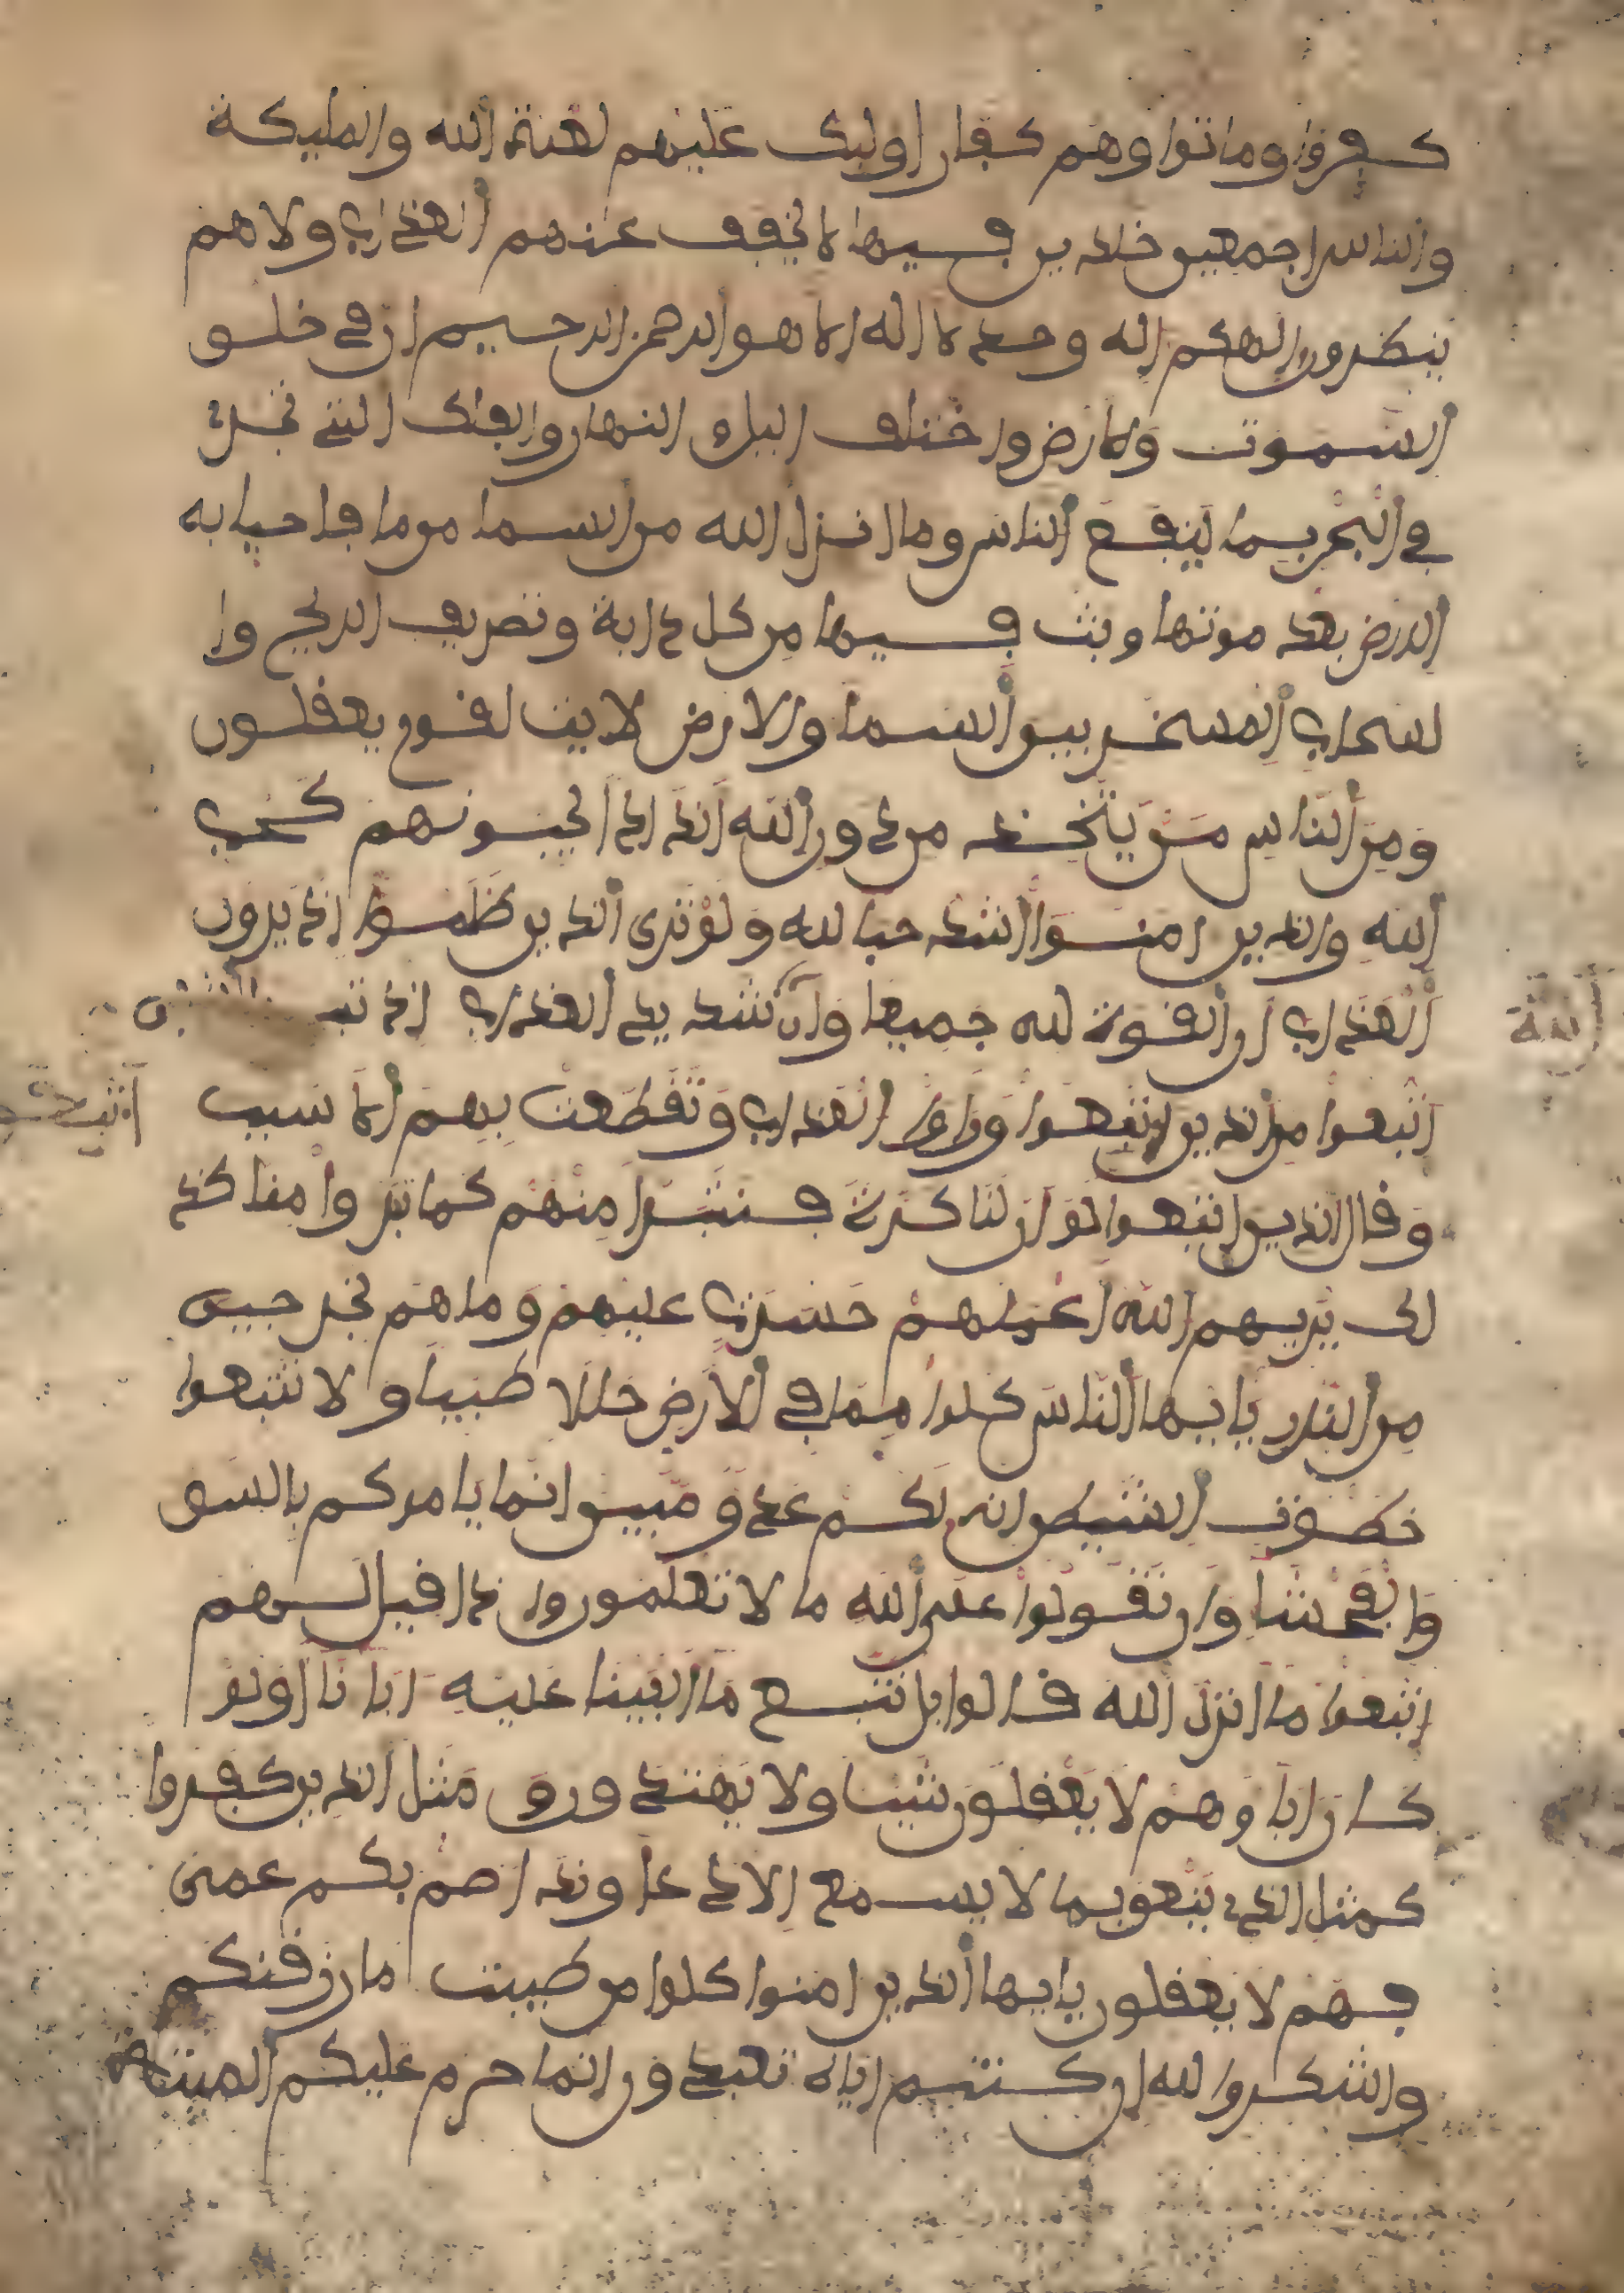 كفروا وماتوا وهم كفار اوليك عليهم لعنة الله والمليكة
والناس اجمعين خلدين فيها لا يخفف عنهم العذاب ولا هم
ينظرون الهكم اله وحد لا اله الا هو الرحمن الرحيم ان في خلو
السموت والارض واختلف اليل و النهار والفلك التي تجري
في البحر بما ينفع الناس وما انزل الله من السما من ما فاحيا به
الارض بعد موتها وبث فيها من كل دابة وتصريف الريح وا
لسحاب المسخر بين السما والارض لايت لقوم يعقلون
ومن الناس من يتخذ من دون الله اندادا يحبونهم كحب
الله والذين امنوا اشد حبا لله ولو ترى الذين ظلموا اذ يرون
العذاب ان القوة لله جميعا وان شديد العذاب اذ
اتبعوا من الذين اتبعوا وراوا العذاب وتقطعت بهم الا سبب
وقال الذين اتبعوا لو ان لنا كرة فنتبرا منهم كما تبروا منا كذ
لك يريهم الله اعملهم حسرت عليهم وما هم بخرجين
من النار يايها الناس كلوا مما في الارض حللا طيبا ولا تتبعوا
خطوت الشيطن انه لكم عدو مبين انما يامركم بالسو
والفحشا وان تقولوا على الله ما لا تعلمون واذا قيل لهم
اتبعوا ما انزل الله قالوا بل نتبع ما الفينا عليه ابانا اولو
كان اباوهم لا يعقلون شيا ولا يهتدون و مثل الذين كفروا
كمثل الذي ينعق بما لا يسمع الا دعا وندا صم بكم عمى
فهم لا يعقلون يايها الذين امنوا كلوا من طيبت ما رزقنكم
واشكروا لله ان كنتم اياه تعبدون انما حرم عليكم الميتة